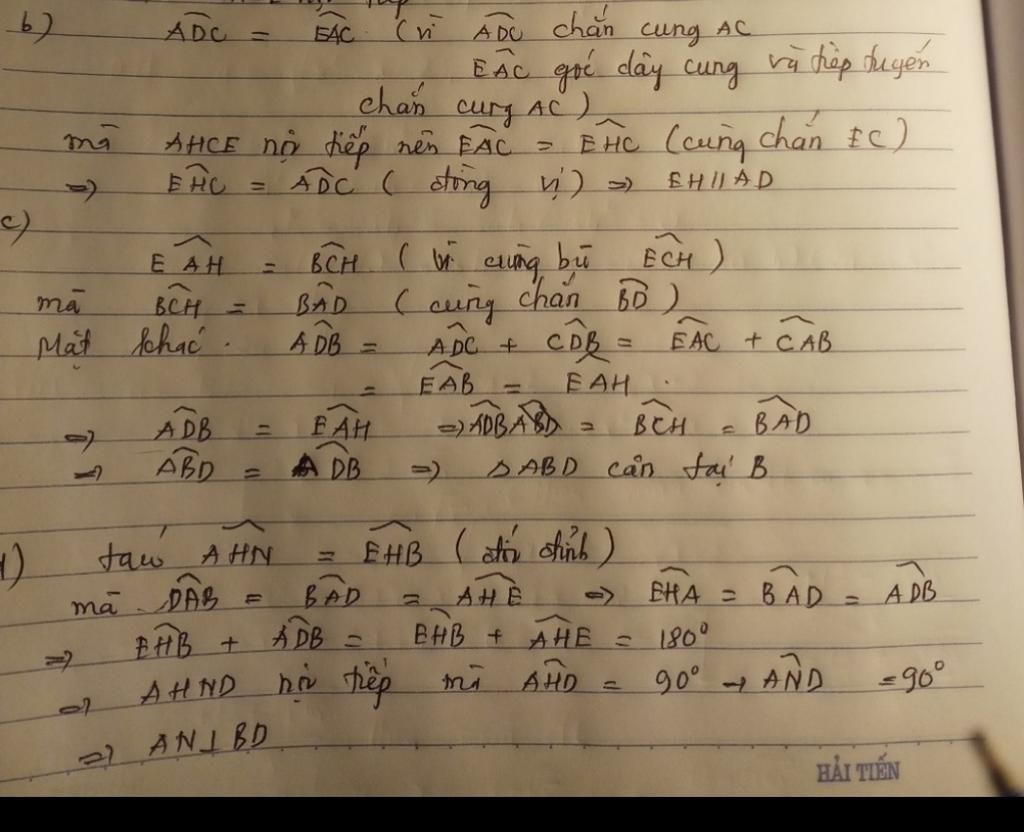 b) ADC = EAC (vì ADC chắn cung AC
EAC góc dây cung và tiếp tuyến
chắn cung AC)
mà AHCE nội tiếp nên EAC = EHC (cùng chắn EC)
=> EHC = ADC (đồng vị) => EH // AD
c)
EAH = BCH (vì cùng bù ECH)
mà BCH = BAD (cùng chắn BD)
Mặt khác. ADB = ADC + CDB = EAC + CAB
= EAB = EAH.
=> ADB = EAH => = BCH = BAD
=> ABD = ADB => △ABD cân tại B
ta có AHN = EHB (đối đỉnh)
mà DAB = BAD = AHE => EHA = BAD = ADB
=> EHB + ADB = EHB + AHE = 180°
=> AHND nội tiếp mà AHD = 90° → AND = 90°
=> AN ⊥ BD
HẢI TIẾN